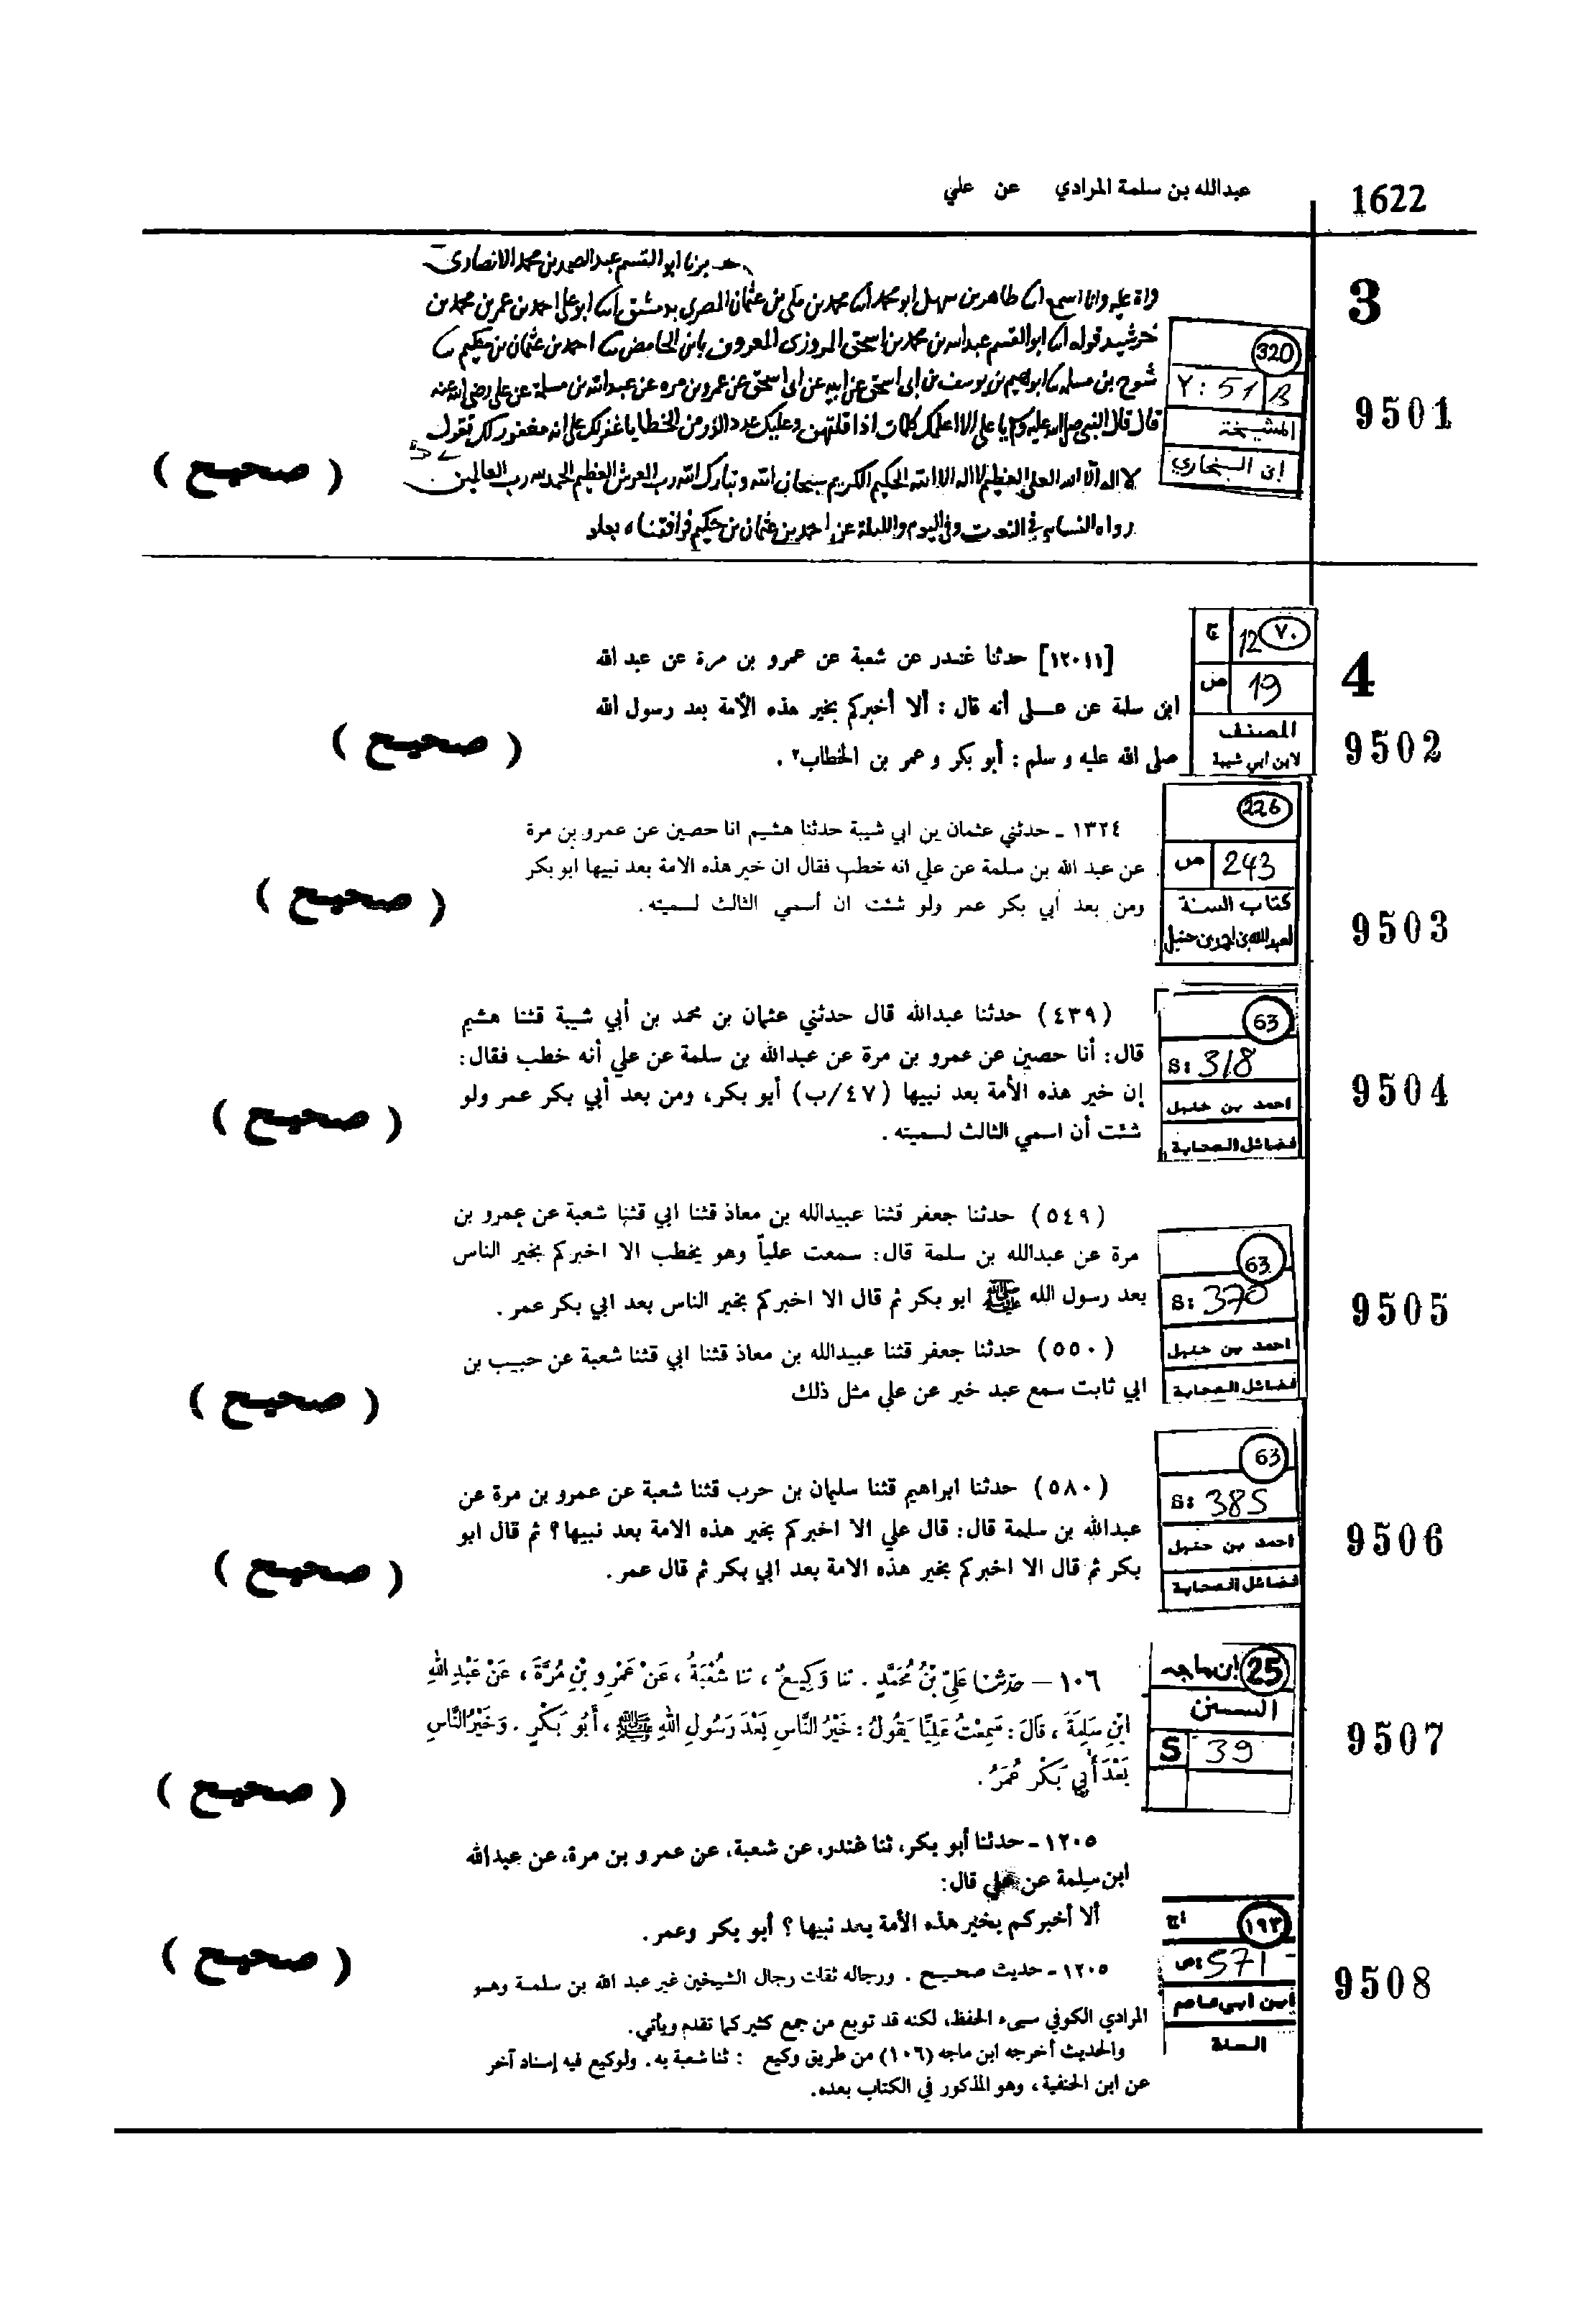 1622
عبدالله بن سلمة المرادي عن علي
3
اخبرنا ابو القسم عبد الصمد بن محمد الانصارى
طاهر بن سهل ابو محمد انا محمد بن مكي بن عثمان المصري بدمشق انا ابو علي احمد بن عمر بن محمد بن
خرشيد قوله انا ابو القسم عبد الله بن محمد بن اسحق المروزى المعروف بابن الحامض ثنا احمد بن عثمان بن حكيم ثنا
شريح بن مسلمه ثنا ابراهيم بن يوسف بن ابى اسحق عن ابيه عن ابى اسحق عن عمرو بن مره عن عبد الله بن سلمة عن على رضى الله عنه
قال قال النبى صلى الله عليه وسلم يا على الا اعلمك كلمات اذا قلتهن وعليك عدد الذر من الخطايا غفر لك على انه مغفور لك تقول
لا اله الا الله العلى العظيم لا اله الا الله الحكيم الكريم سبحان الله وتبارك الله رب العرش العظيم الحمد لله رب العالمين
رواه النسائى فى النعوت وفى اليوم والليلة عن احمد بن عثمان بن حكيم فوافقناه بعلو
320
Y: 51 B
المشيخة
ابن البخاري
9501
( صحيح )
4
٧٠ 12 ج
19 ص
المصنف
لابن ابي شيبة
9502
[١٢٠١١] حدثنا غندر عن شعبة عن عمرو بن مرة عن عبد الله
ابن سلمة عن عــلى أنه قال : ألا أخبركم بخير هذه الأمة بعد رسول الله
صلى الله عليه و سلم : أبو بكر و عمر بن الخطاب٢ .
( صحيح )
226
243 ص
كتاب السنة
لعبدالله بن احمد بن حنبل
9503
١٣٢٤ ـ حدثني عثمان بن ابي شيبة حدثنا هشيم انا حصين عن عمرو بن مرة
عن عبد الله بن سلمة عن علي انه خطب فقال ان خير هذه الامة بعد نبيها ابو بكر
ومن بعد أبي بكر عمر ولو شئت ان أسمي الثالث لسميته .
( صحيح )
63
S: 318
احمد بن حنبل
فضائل الصحابة
9504
(٤٣٩) حدثنا عبدالله قال حدثني عثمان بن محمد بن أبي شيبة قثنا هشيم
قال: أنا حصين عن عمرو بن مرة عن عبدالله بن سلمة عن علي أنه خطب فقال:
إن خير هذه الأمة بعد نبيها (٤٧/ب) أبو بكر، ومن بعد أبي بكر عمر ولو
شئت أن اسمي الثالث لسميته .
( صحيح )
63
S: 370
احمد بن حنبل
فضائل الصحابة
9505
(٥٤٩) حدثنا جعفر قثنا عبيدالله بن معاذ قثنا ابي قثنا شعبة عن عمرو بن
مرة عن عبدالله بن سلمة قال: سمعت علياً وهو يخطب الا اخبركم بخير الناس
بعد رسول الله ﷺ ابو بكر ثم قال الا اخبركم بخير الناس بعد ابي بكر عمر.
(٥٥٠) حدثنا جعفر قثنا عبيدالله بن معاذ قثنا ابي قثنا شعبة عن حبيب بن
ابي ثابت سمع عبد خير عن علي مثل ذلك
( صحيح )
63
S: 385
احمد بن حنبل
فضائل الصحابة
9506
(٥٨٠) حدثنا ابراهيم قثنا سليمان بن حرب قثنا شعبة عن عمرو بن مرة عن
عبدالله بن سلمة قال: قال علي الا اخبركم بخير هذه الامة بعد نبيها؟ ثم قال ابو
بكر ثم قال الا اخبركم بخير هذه الامة بعد ابي بكر ثم قال عمر.
( صحيح )
25 ابن ماجه
السنن
S 39
9507
١٠٦ — حَدَّثَنَا عَلِيُّ بْنُ مُحَمَّدٍ . ثنا وَكِيعٌ ، ثنا شُعْبَةُ ، عَنْ عَمْرِو بْنِ مُرَّةَ ، عَنْ عَبْدِ اللهِ
ابْنِ سَلِمَةَ ، قَالَ : سَمِعْتُ عَلِيًّا يَقُولُ : خَيْرُ النَّاسِ بَعْدَ رَسُولِ اللهِ ﷺ ، أَبُو بَكْرٍ . وَخَيْرُ النَّاسِ
بَعْدَ أَبِي بَكْرٍ عُمَرُ .
( صحيح )
١٢٠٥ـ حدثنا أبو بكر، ثنا غندر، عن شعبة، عن عمرو بن مرة، عن عبدالله
ابن سلمة عن علي قال:
ألا أخبركم بخير هذه الأمة بعد نبيها؟ أبو بكر وعمر.
١٢٠٥ـ حديث صحيح . ورجاله ثقات رجال الشيخين غير عبد الله بن سلمة وهو
المرادي الكوفي سيىء الحفظ، لكنه قد توبع من جمع كثير كما تقدم ويأتي.
والحديث أخرجه ابن ماجه (١٠٦) من طريق وكيع : ثنا شعبة به. ولوكيع فيه إسناد آخر
عن ابن الحنفية، وهو المذكور في الكتاب بعده.
( صحيح )
١٩٣ ج
571 ص:
ابن ابي عاصم
السنة
9508